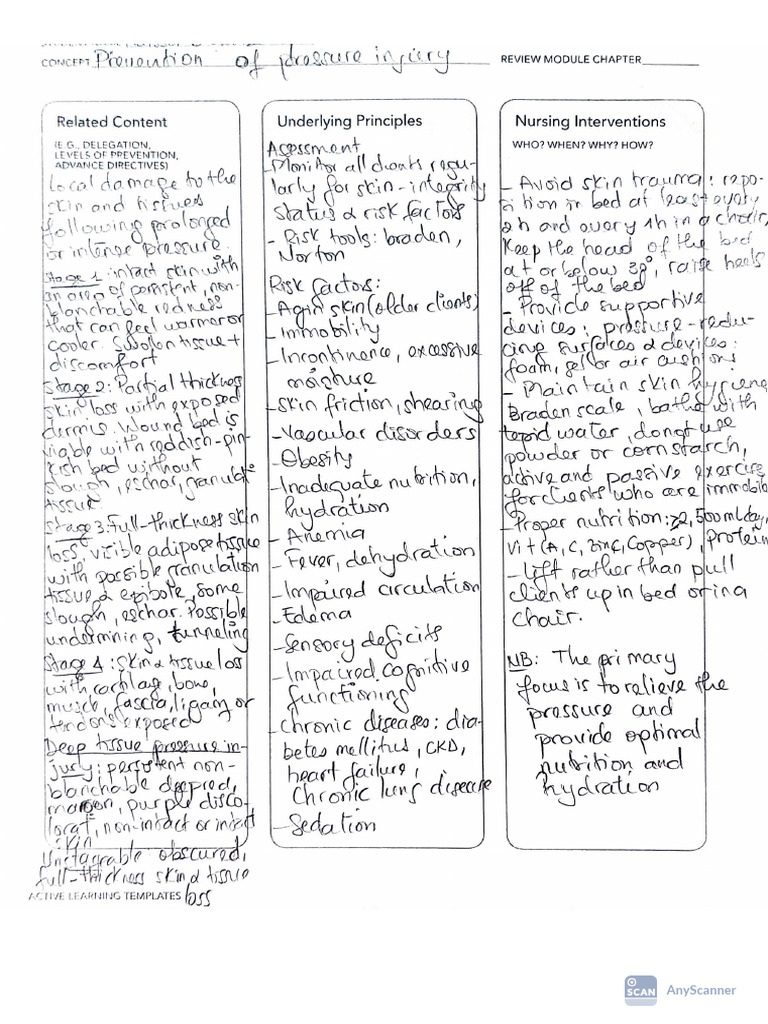 CONCEPT Prevention of pressure injury
REVIEW MODULE CHAPTER
Related Content
(E.G., DELEGATION,
LEVELS OF PREVENTION,
ADVANCE DIRECTIVES)
Local damage to the
skin and tissues
following prolonged
or intense pressure.
Stage 1: intact skin with
an area of persistent, non-
blanchable redness
that can feel warmer or
cooler. Swollen tissue +
discomfort
Stage 2: Partial thickness
skin loss with exposed
dermis. Wound bed is
viable with reddish-pin-
kish bed without
slough, eschar, granulat
tissue.
Stage 3. Full-thickness skin
loss, visible adipose tissue
with possible granulation
tissue & epibole, some
slough, eschar. Possible
undermining, tunneling
Stage 4: skin & tissue loss
with cartilag, bone,
muscle, fascia, ligam or
tendons exposed
Deep tissue pressure in-
jury: persistent non-
blanchable deep red,
maroon, purple disco-
lorat, non-intact or intact
skin
Unstagrable obscured,
full-thickness skin & tissue
loss
ACTIVE LEARNING TEMPLATES
Underlying Principles
Assessment
- Monitor all clients regu-
larly for skin-integrity
status & risk factors
- Risk tools: braden,
Norton
Risk factors:
- Agin skin (older clients)
- Immobility
- Incontinence, excessive
moisture
- skin friction, shearing
- Vascular disorders
- Obesity
- Inadequate nutrition,
hydration
- Anemia
- Fever, dehydration
- Impaired circulation
- Edema
- Sensory deficits
- Impaired cognitive
functioning
- Chronic diseases: dia-
betes mellitus, CKD,
heart failure,
Chronic lung disease
- Sedation
Nursing Interventions
WHO? WHEN? WHY? HOW?
- Avoid skin trauma: repo-
sition in bed at least every
2h and every 1h in a chair,
Keep the head of the bed
at or below 30°, raise heels
off of the bed
- Provide supportive
devices: pressure-redu-
cing surfaces & devices:
foam, gel or air cushions
- Maintain skin hygiene
Braden scale, bathe with
tepid water, donot use
powder or cornstarch,
active and passive exercise
for clients who are immobile
- Proper nutrition: ≥2,500ml/day,
vit (A, C, Zinc, Copper), protein
- lift rather than pull
clients up in bed or in a
chair.
NB: The primary
focus is to relieve the
pressure and
provide optimal
nutrition and
hydration
SCAN AnyScanner